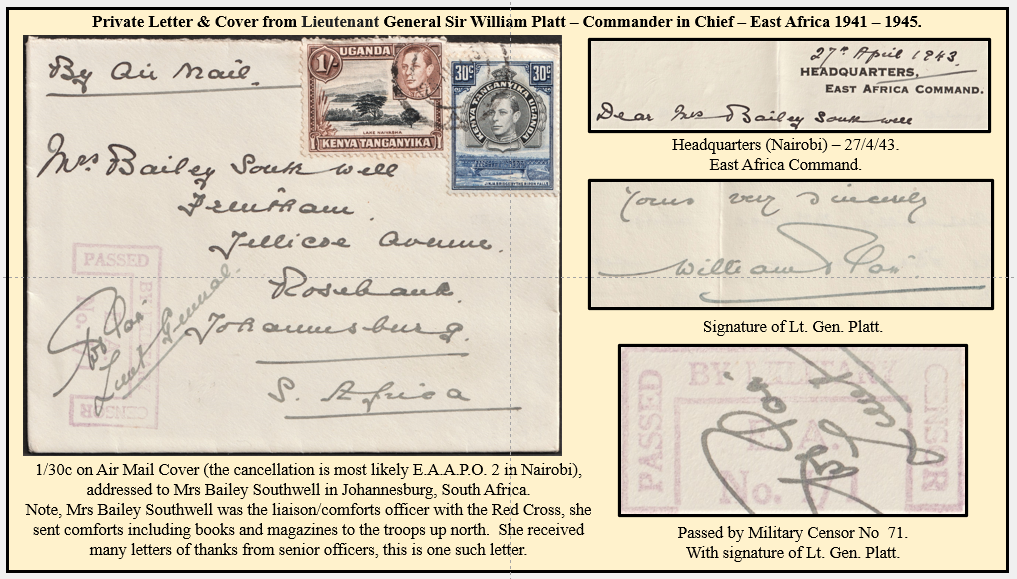 Private Letter & Cover from Lieutenant General Sir William Platt – Commander in Chief – East Africa 1941 – 1945.
By Air Mail.
UGANDA
1/-
LAKE NAIVASHA
KENYA TANGANYIKA
30c 30c
KENYA TANGANYIKA UGANDA
Mrs Bailey Southwell
Trentham.
Jellicoe Avenue.
Rosebank.
Johannesburg.
S. Africa
PASSED
No.
CENSOR
Lieut General.
1/30c on Air Mail Cover (the cancellation is most likely E.A.A.P.O. 2 in Nairobi),
addressed to Mrs Bailey Southwell in Johannesburg, South Africa.
Note, Mrs Bailey Southwell was the liaison/comforts officer with the Red Cross, she
sent comforts including books and magazines to the troops up north. She received
many letters of thanks from senior officers, this is one such letter.
27th April 1943.
HEADQUARTERS,
EAST AFRICA COMMAND.
Dear Mrs Bailey Southwell
Headquarters (Nairobi) – 27/4/43.
East Africa Command.
Yours very sincerely
William Platt
Signature of Lt. Gen. Platt.
PASSED
BY MILITARY
CENSOR
No.
Passed by Military Censor No 71.
With signature of Lt. Gen. Platt.